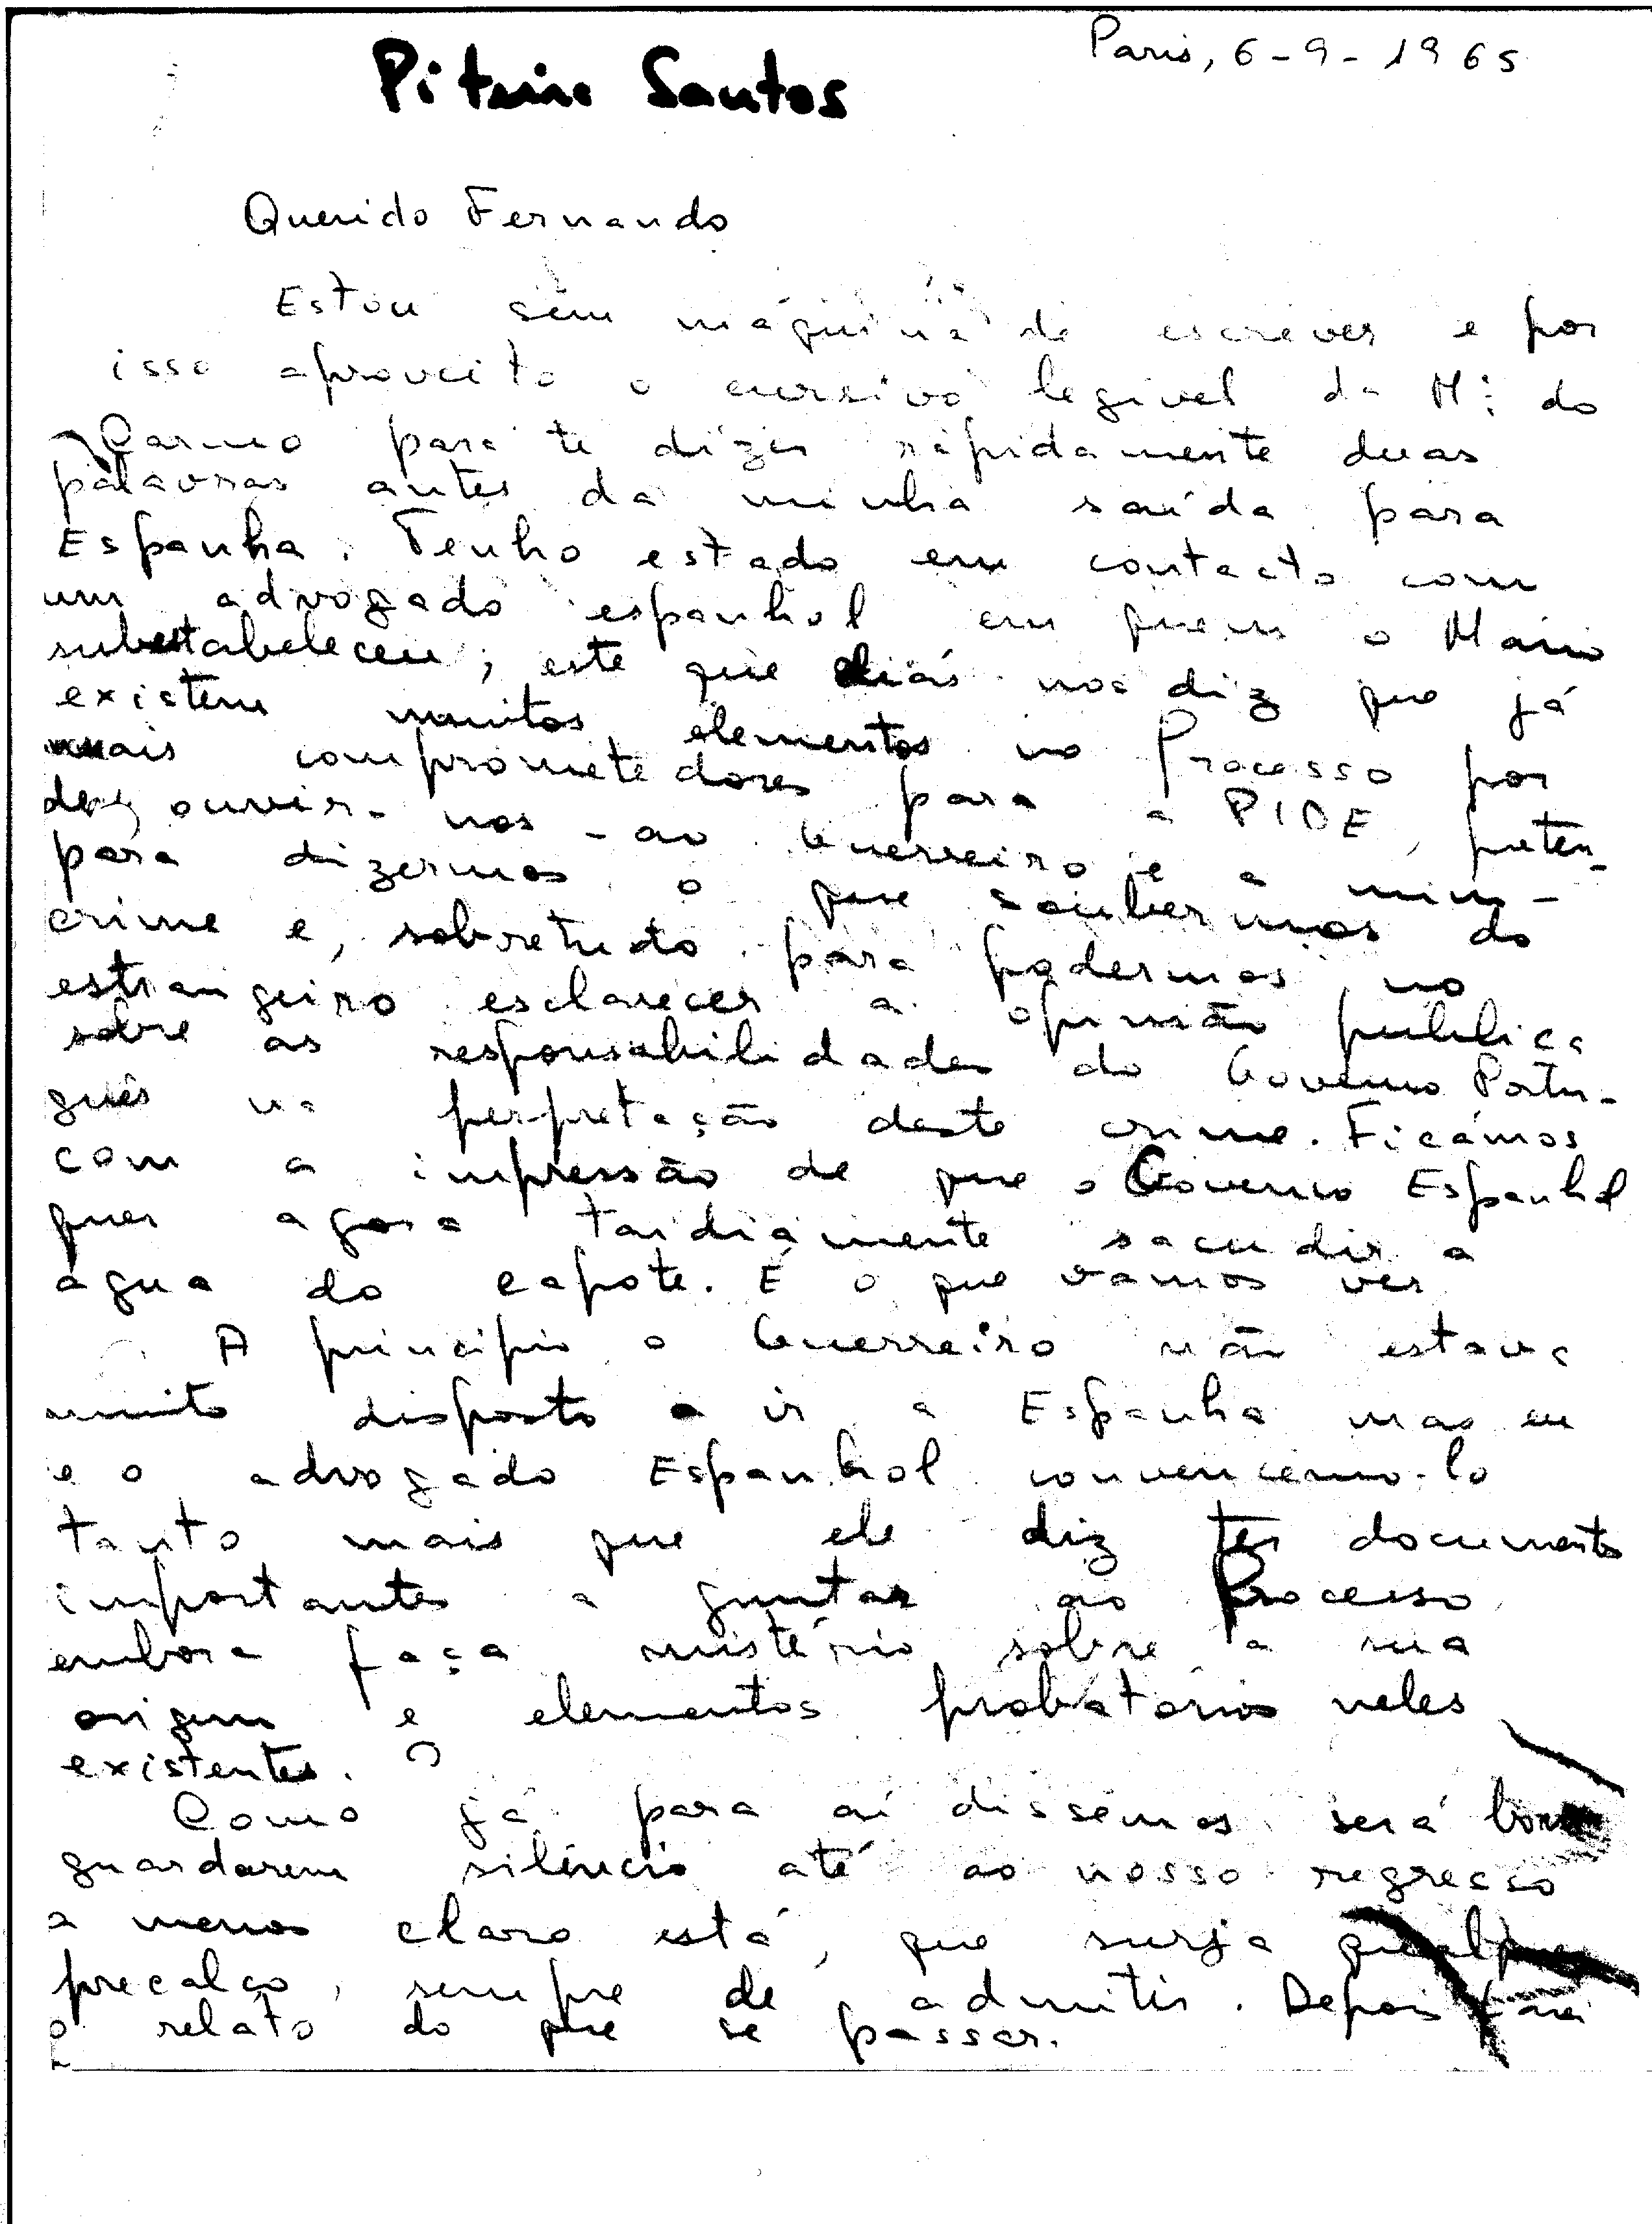 Paris, 6-9-1965
Piteira Santos
Querido Fernando
Estou sem máquina de escrever e por
isso aproveito o cursivo legivel da Mª do
Carmo para te dizer rápidamente duas
palavras antes da minha saída para
Espanha. Tenho estado em contacto com
um advogado espanhol em quem o Mário
subestabeleceu; este que aliás nos diz que já
existem muitos elementos no Processo por
mais comprometedores para a PIDE, preten-
de ouvir-nos - ao Guerreiro e a mim -
para dizermos o que soubermos do
crime e, sobretudo para podermos no
estrangeiro esclarecer a opinião publica
sobre as responsabilidades do Governo Portu-
guês na perpretação deste crime. Ficámos
com a impressão de que o Governo Espanhol
quer agora tardiamente sacudir a
água do capote. É o que vamos ver
A principio o Guerreiro não estava
muito disposto a ir a Espanha mas eu
e o advogado Espanhol convencemo-lo
tanto mais que ele diz ter documentos
importantes a juntar ao Processo
embora faça mistério sobre a sua
origem e elementos probatórios neles
existentes.
Como já para aí dissemos será bom
guardarem silêncio até ao nosso regresso
a menos claro está, que surja qualquer
precalço, sempre de admitir. Depois farei
o relato do que se passar.